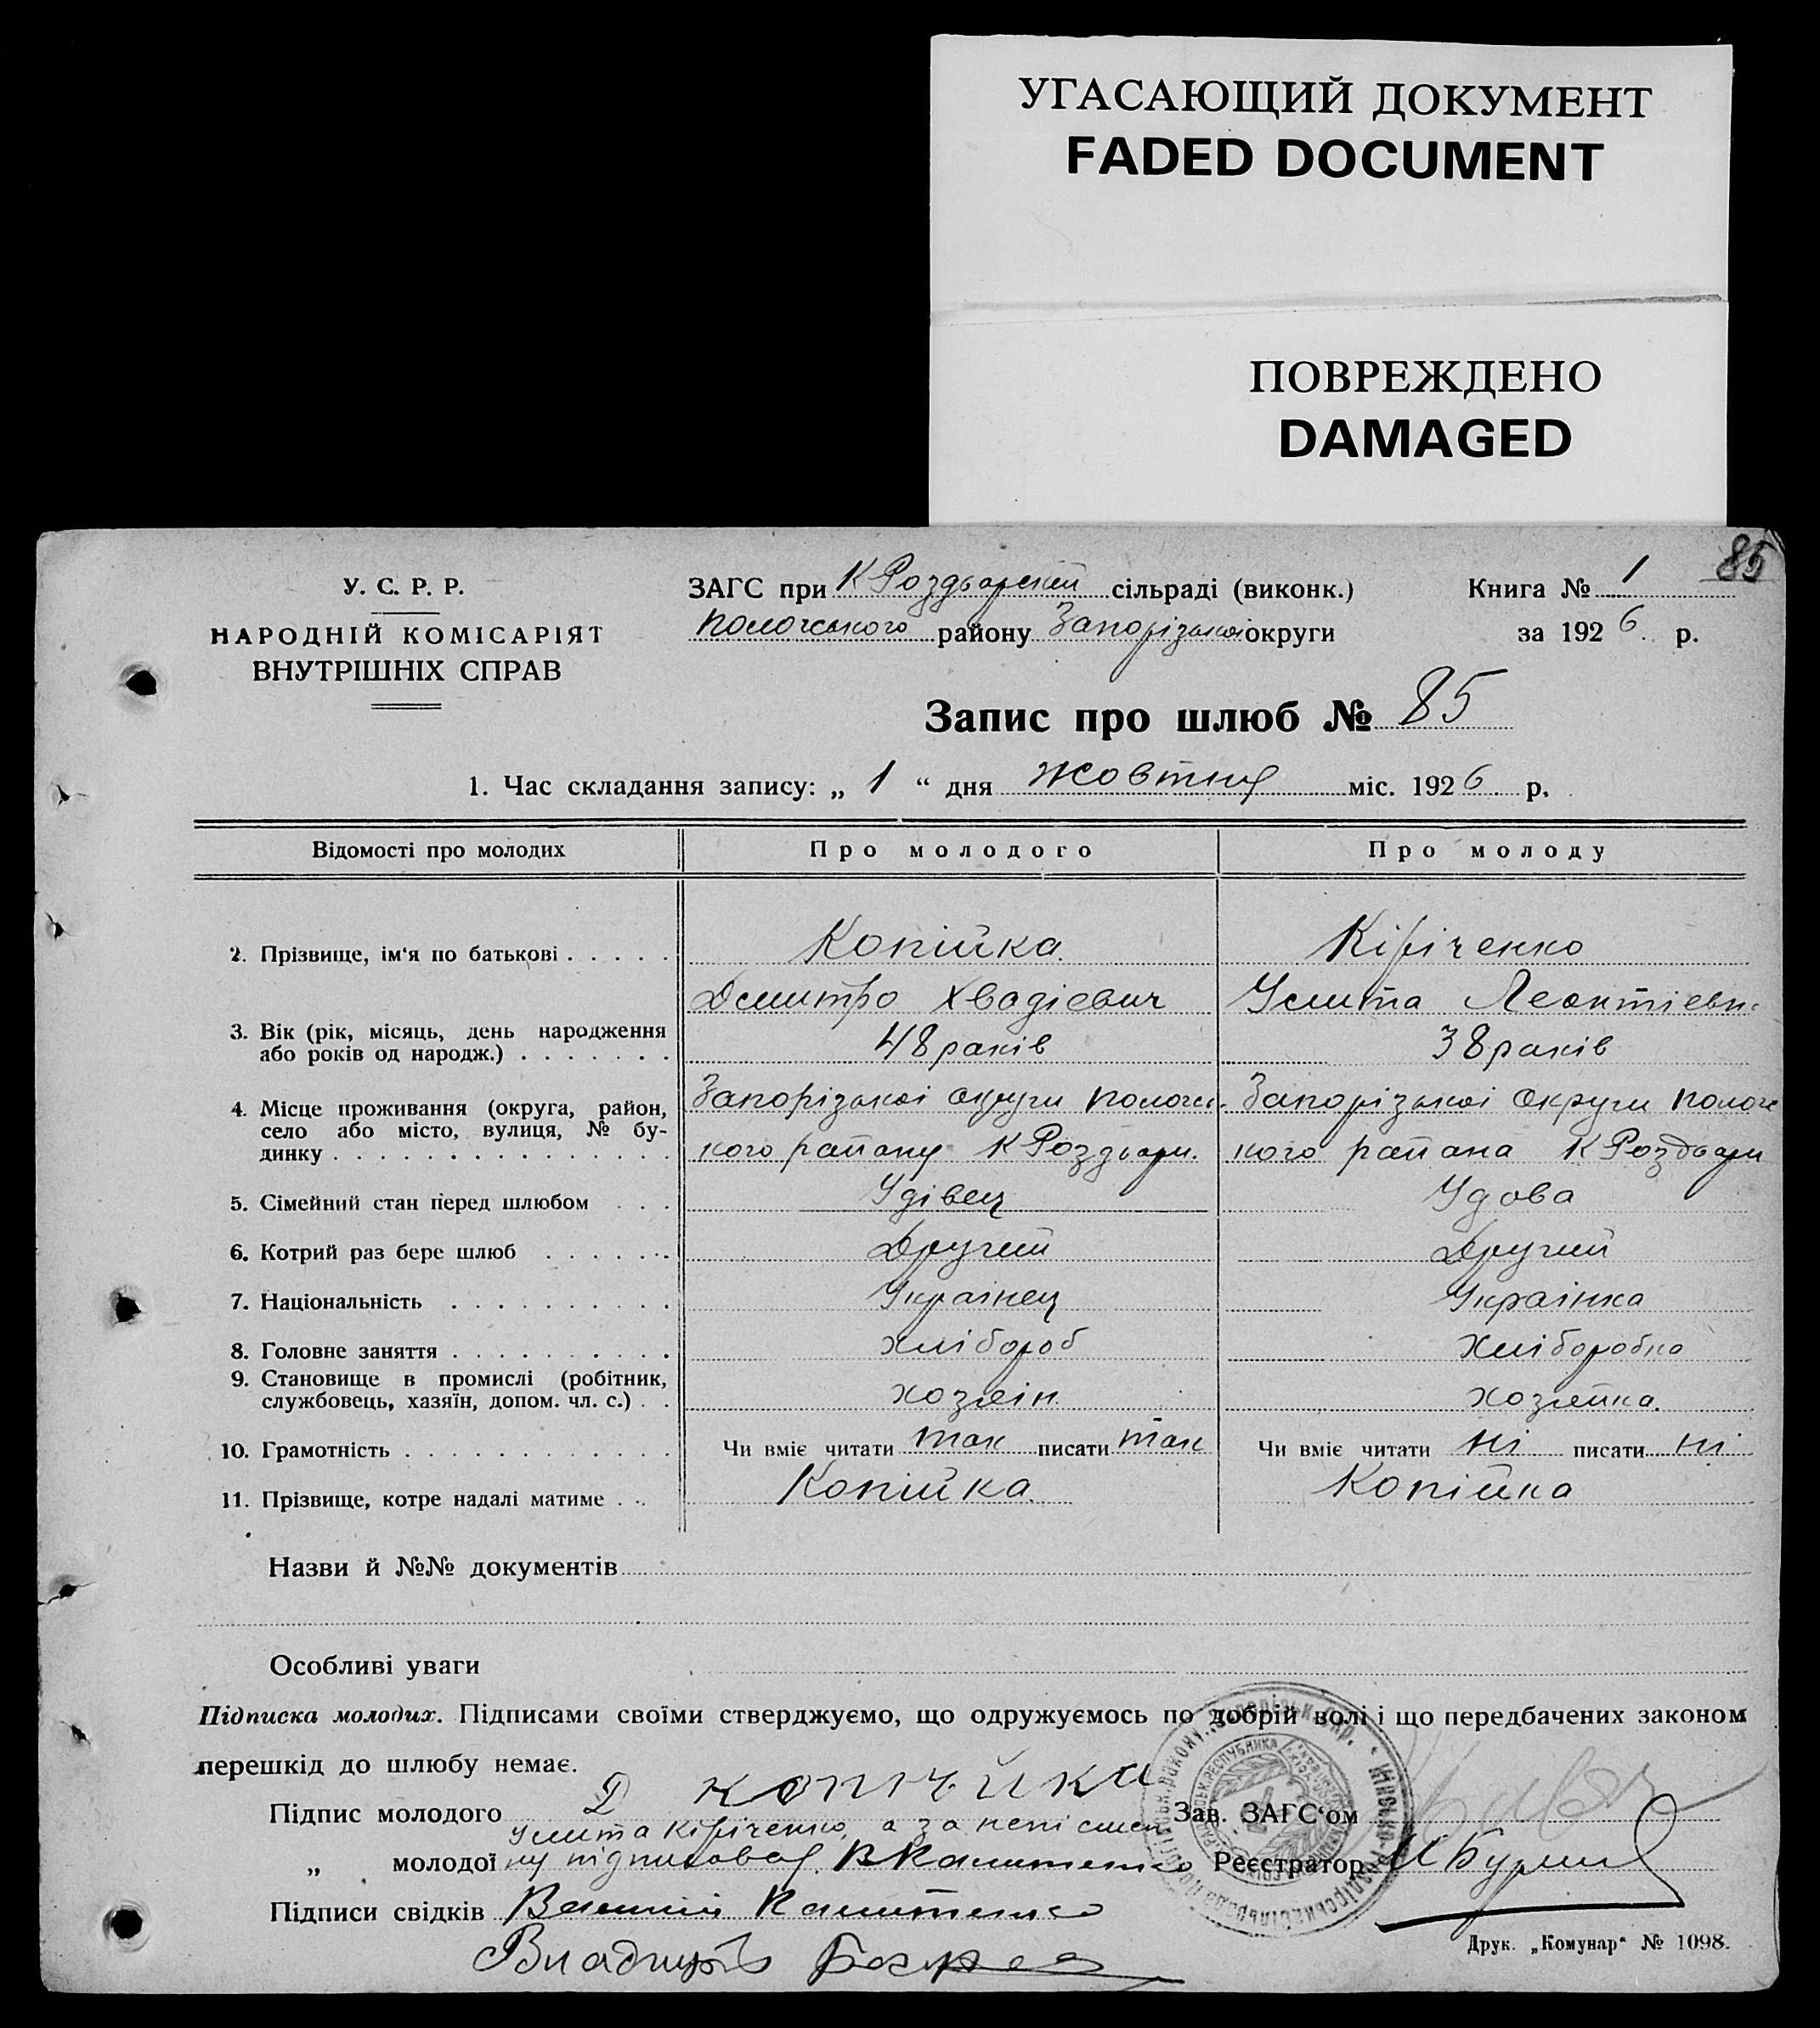 УГАСАЮЩИЙ ДОКУМЕНТ
FADED DOCUMENT
ПОВРЕЖДЕНО
DAMAGED
85
У. С. Р. Р.
НАРОДНІЙ КОМІСАРІЯТ
ВНУТРІШНІХ СПРАВ
ЗАГС при К Роздорскій сільраді (виконк.)
Пологського району Запорізькоі округи
Книга № 1
за 1926 р.
Запис про шлюб № 85
1. Час складання запису: „ 1 “ дня жовтня міс. 1926 р.
Відомості про молодих Про молодого Про молоду
2. Прізвище, ім‘я по батькові Копійка Кіріченко
Дмитро Хвадієвич Улита Леонтіевн.
3. Вік (рік, місяць, день народження
або років од народж.) 48 раків 38 раків
4. Місце проживання (округа, район,
село або місто, вулиця, № бу-
динку
Запорізькоі округи пологс- Запорізькоі округи пологс
кого району К Роздьори. кого райана К Роздьори
5. Сімейний стан перед шлюбом Удівец Удова
6. Котрий раз бере шлюб Другий Другий
7. Національність Украінец Украінка
8. Головне заняття хлібороб Хліборобка
9. Становище в промислі (робітник,
службовець, хазяїн, допом. чл. с.) хозяін хозяйка.
10. Грамотність Чи вміє читати так писати так Чи вміє читати ні писати ні
11. Прізвище, котре надалі матиме Копійка Копійка
Назви й №№ документів
Особливі уваги
Підписка молодих. Підписами своїми стверджуємо, що одружуємось по добрій волі і що передбачених законом
перешкід до шлюбу немає.
Підпис молодого Д копійка Зав. ЗАГС‘ом
Улита Кіріченко, а за непісмен
„ молодої ну підписовал Реєстратор
Підписи свідків
Друк. „Комунар“ № 1098.